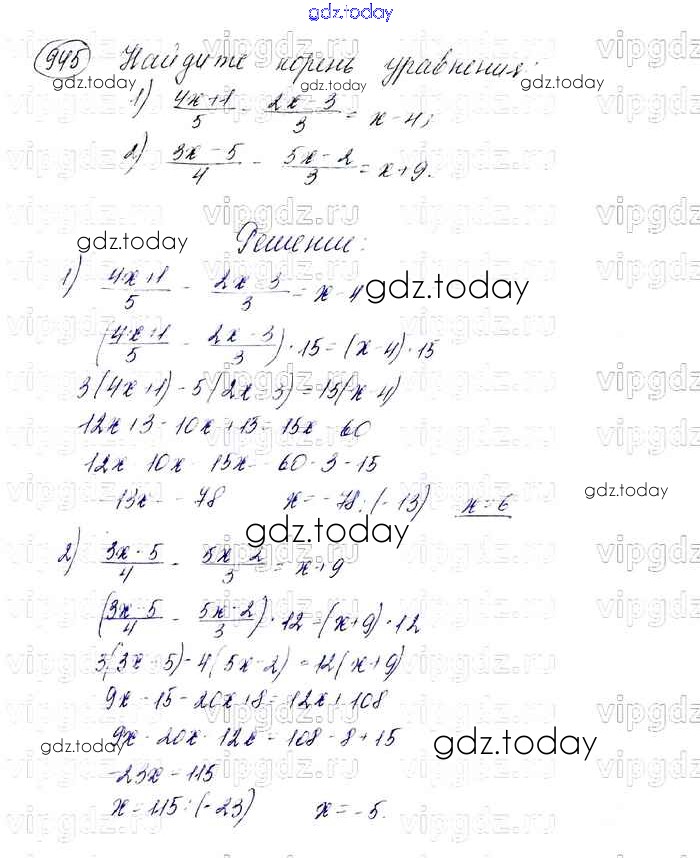 gdz.today
945 Найдите корень уравнения:
1) (4x+1)/5 - (2x-3)/3 = x-4;
2) (3x-5)/4 - (5x-2)/3 = x+9.
Решение:
gdz.today
1) (4x+1)/5 - (2x-3)/3 = x-4
gdz.today
((4x+1)/5 - (2x-3)/3)·15=(x-4)·15
3(4x+1)-5(2x-3)=15(x-4)
12x+3-10x+15=15x-60
12x-10x-15x=-60-3-15
-13x=-78 x=-78:(-13) x=6
gdz.today
gdz.today
2) (3x-5)/4 - (5x-2)/3 = x+9
((3x-5)/4 - (5x-2)/3)·12=(x+9)·12
3(3x-5)-4(5x-2)=12(x+9)
9x-15-20x+8=12x+108
9x-20x-12x=108-8+15
gdz.today
gdz.today
-23x=115
x=115:(-23) x=-5.